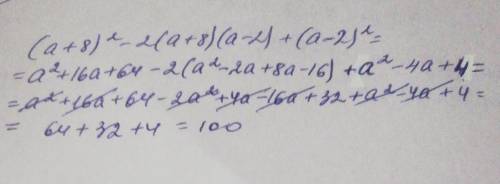 (a+8)² - 2(a+8)(a-2) + (a-2)² =
= a² + 16a + 64 - 2(a² - 2a + 8a - 16) + a² - 4a + 4 =
= a² + 16a + 64 - 2a² + 4a - 16a + 32 + a² - 4a + 4 =
= 64 + 32 + 4 = 100